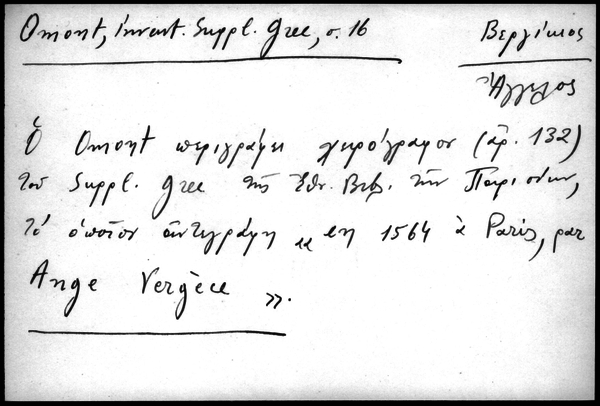 Omont, invent. Suppl. Grec, σ. 16
Βεργίκιος
Ἄγγελος
Ὁ Omont περιγράφει χειρόγραφον (ἀρ. 132)
τοῦ Suppl. Grec τῆς Ἐθν. Βιβ. τῶν Παρισίων,
τὸ ὁποῖον ἀντεγράφη « en 1564 à Paris, par
Ange Vergèce ».